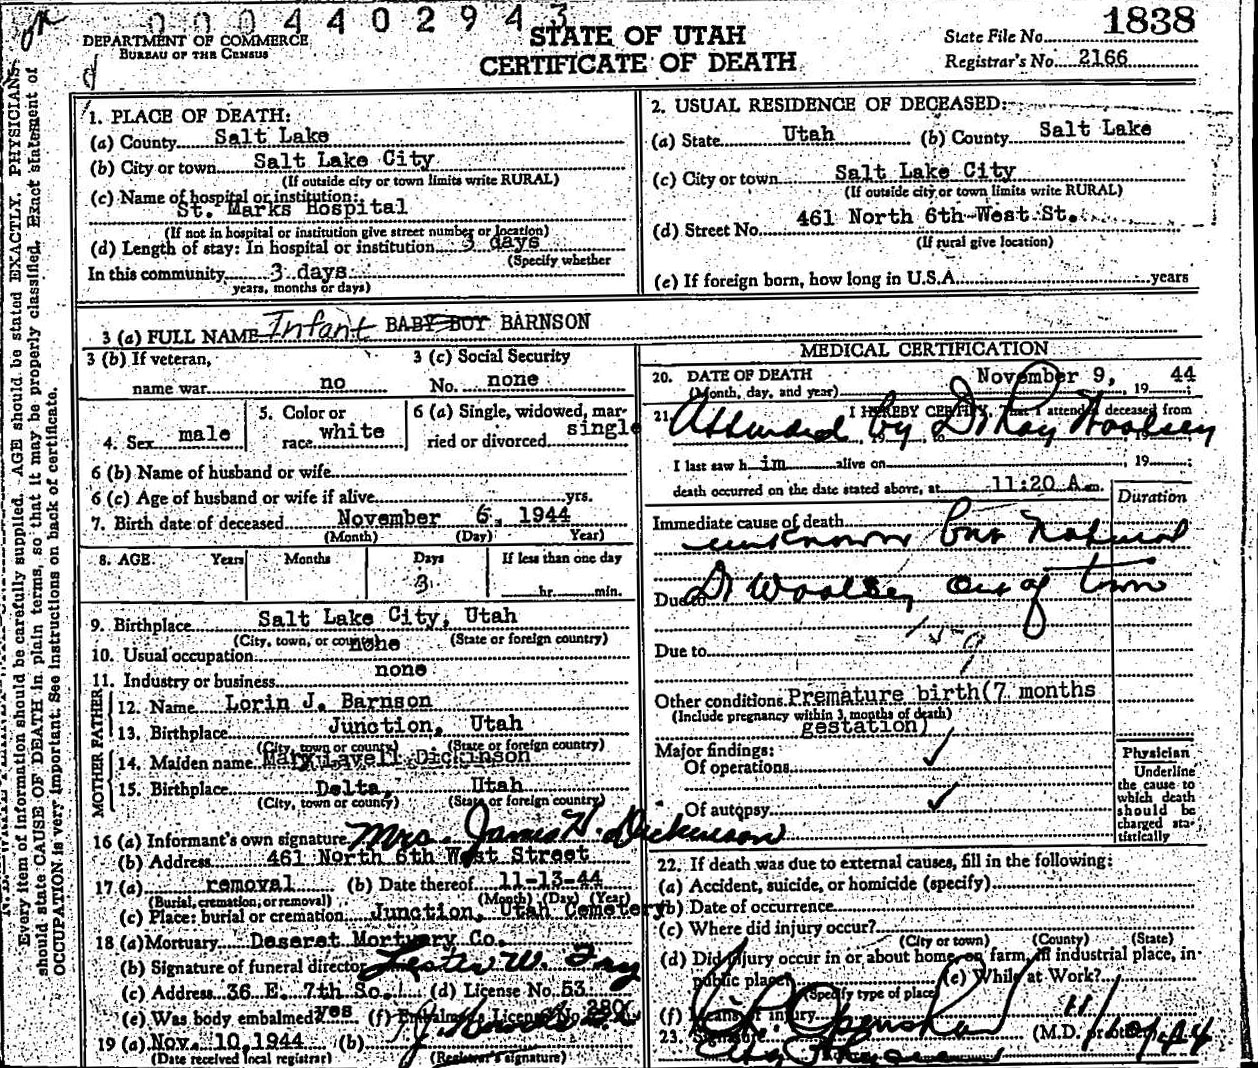 0 0 0 4 4 0 2 9 4 3
DEPARTMENT OF COMMERCE
BUREAU OF THE CENSUS
STATE OF UTAH
CERTIFICATE OF DEATH
State File No. 1838
Registrar's No. 2166
Every item of information should be carefully supplied. AGE should be stated EXACTLY. PHYSICIANS
should state CAUSE OF DEATH in plain terms, so that it may be properly classified. Exact statement of
OCCUPATION is very important. See instructions on back of certificate.
1. PLACE OF DEATH:
(a) County Salt Lake
(b) City or town Salt Lake City
(If outside city or town limits write RURAL)
(c) Name of hospital or institution:
St. Marks Hospital
(If not in hospital or institution give street number or location)
(d) Length of stay: In hospital or institution 3 days
(Specify whether
In this community 3 days
years, months or days)
2. USUAL RESIDENCE OF DECEASED:
(a) State Utah (b) County Salt Lake
(c) City or town Salt Lake City
(If outside city or town limits write RURAL)
(d) Street No. 461 North 6th West St.
(If rural give location)
(e) If foreign born, how long in U.S.A. years
3 (a) FULL NAME Infant BABY BOY BARNSON
3 (b) If veteran, 3 (c) Social Security
name war no No. none
4. Sex male 5. Color or race white 6 (a) Single, widowed, married or divorced single
6 (b) Name of husband or wife
6 (c) Age of husband or wife if alive yrs.
7. Birth date of deceased November 6, 1944
(Month) (Day) Year)
8. AGE Years Months Days If less than one day
3 hr. min.
9. Birthplace Salt Lake City, Utah
(City, town, or county) (State or foreign country)
10. Usual occupation none
11. Industry or business none
FATHER
12. Name Lorin J. Barnson
13. Birthplace Junction, Utah
(City, town or county) (State or foreign country)
MOTHER
14. Maiden name Mary Lavell Dickinson
15. Birthplace Delta, Utah
(City, town or county) (State or foreign country)
16 (a) Informant's own signature Mrs. James H. Dickinson
(b) Address 461 North 6th West Street
17 (a) removal (b) Date thereof 11-13-44
(Burial, cremation, or removal) (Month) (Day) (Year)
(c) Place: burial or cremation Junction, Utah Cemetery
18 (a) Mortuary Deseret Mortuary Co.
(b) Signature of funeral director Lester W. Fry
(c) Address 36 E. 7th So. (d) License No. 53
(e) Was body embalmed? yes (f) Embalmer's License No.
19 (a) Nov. 10, 1944 (b)
(Date received local registrar) (Registrar's signature)
MEDICAL CERTIFICATION
20. DATE OF DEATH November 9, 19 44
(Month, day, and year)
21. I HEREBY CERTIFY, that I attended deceased from
Attended by Dr Ray Woolsey
I last saw h im alive on , 19 ;
death occurred on the date stated above, at 11:20 A m.
Duration
Immediate cause of death
unknown but Natural
Due to Dr Woolsey out of town
Due to
159
Other conditions Premature birth (7 months
(Include pregnancy within 3 months of death)
gestation)
Major findings:
Of operations
Of autopsy
Physician
Underline
the cause to
which death
should be
charged sta-
tistically
22. If death was due to external causes, fill in the following:
(a) Accident, suicide, or homicide (specify)
(b) Date of occurrence
(c) Where did injury occur?
(City or town) (County) (State)
(d) Did injury occur in or about home, on farm, in industrial place, in
public place? (e) While at Work?
(Specify type of place)
(f) Means of injury
23. Signature (M.D. or other) 11/10/44